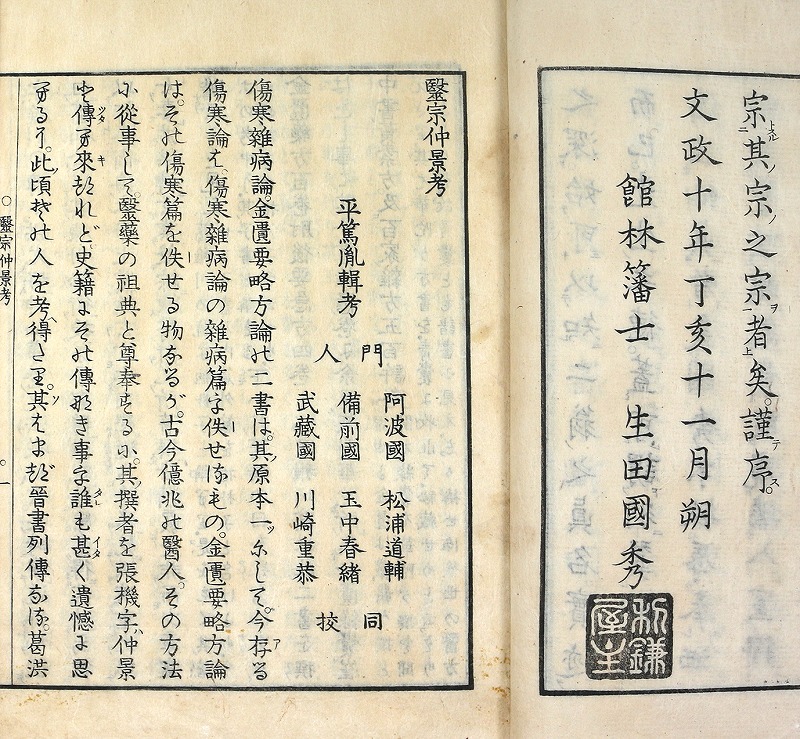 宗其宗之宗者矣。謹序。
文政十年丁亥十一月朔
館林籓士 生田國秀
利鎌屋主
醫宗仲景考
平篤胤輯考
門人
阿波國 松浦道輔
備前國 玉中春緒
武藏國 川崎重恭
同校
傷寒雜病論。金匱要略方論の二書は。其原本一ッにして。今存る
傷寒論は、傷寒雜病論の雜病篇を佚せるもの。金匱要略方論
は。その傷寒篇を佚せる物なるが。古今億兆の醫人。その方法
に從事して。醫藥の祖典と尊奉する に。其撰者を張機字仲景
と傳へ來れど。史籍にその傳なき事を誰も甚く遺憾に思
へるを。此頃その人を考得たり。其はまづ晉書列傳なる葛洪
○醫宗仲景考
○一